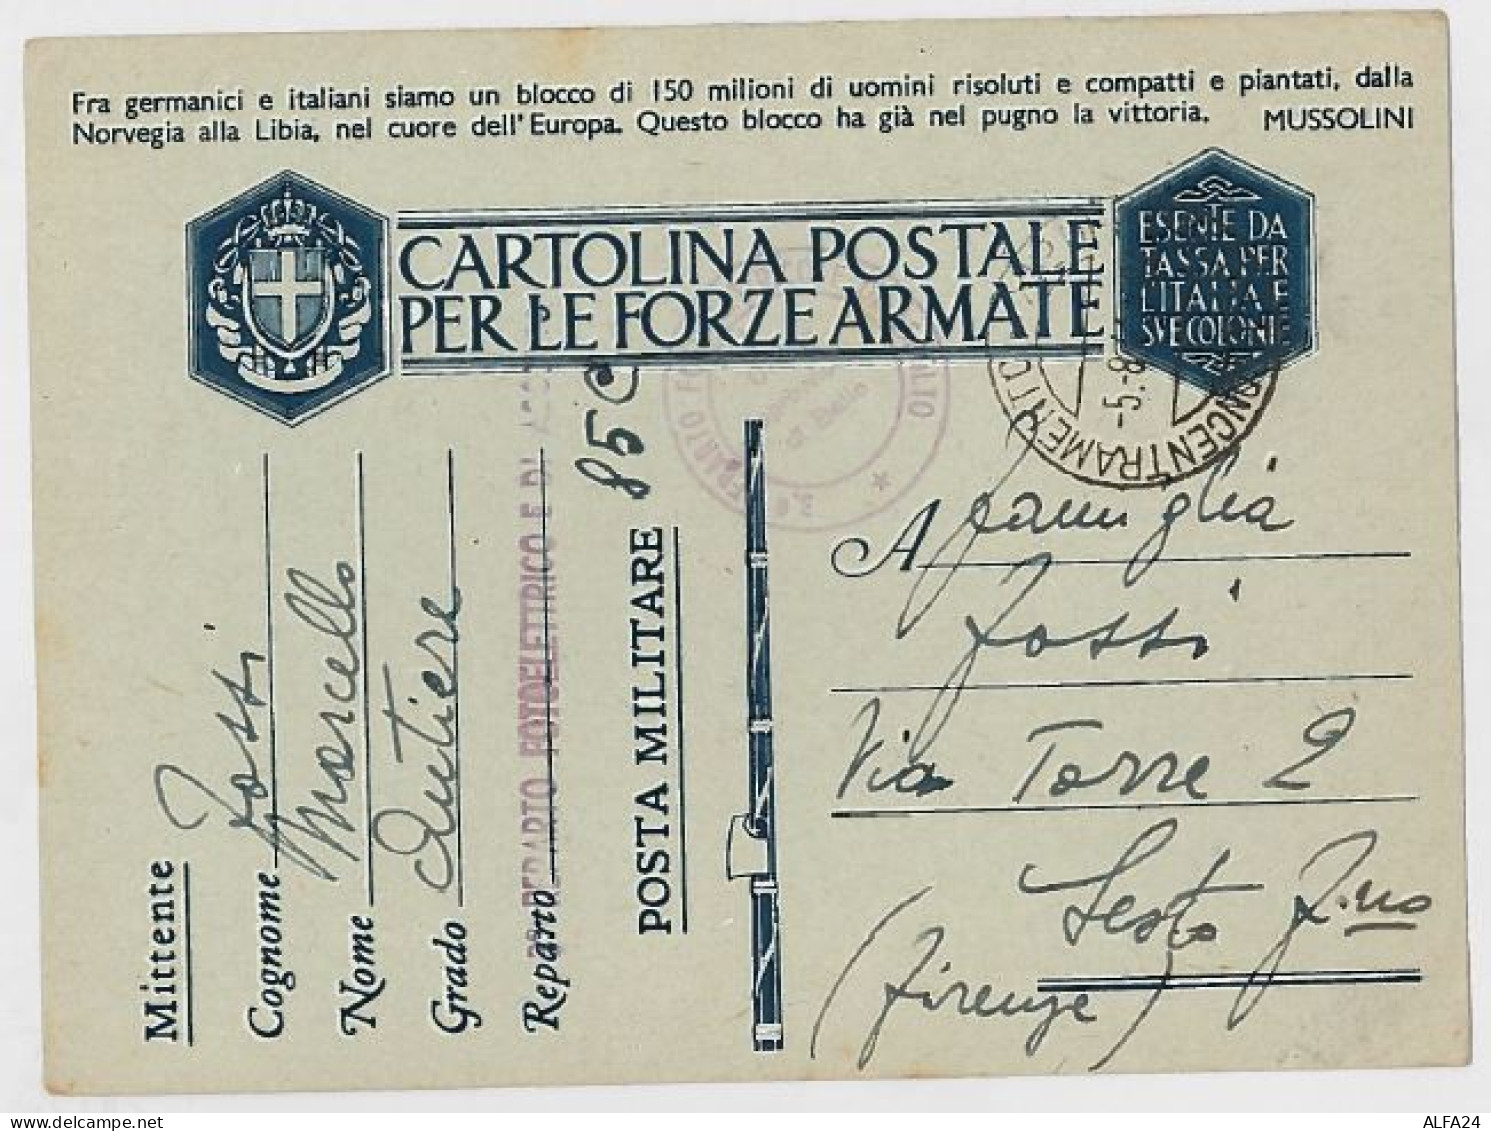 Fra germanici e italiani siamo un blocco di 150 milioni di uomini risoluti e compatti e piantati, dalla
Norvegia alla Libia, nel cuore dell'Europa. Questo blocco ha già nel pugno la vittoria. MUSSOLINI
CARTOLINA POSTALE
PER LE FORZE ARMATE
ESENTE DA
TASSA PER
L'ITALIA E
SVE COLONIE
CONCENTRAMENTO
-5.-8
Mittente
Cognome Fossi
Nome Marcello
Grado
Reparto
REPARTO FOTOELETTRICO E DI
POSTA MILITARE 85
A famiglia
Fossi
Via Torre 2
Sesto F.no
(Firenze)
ALFA24